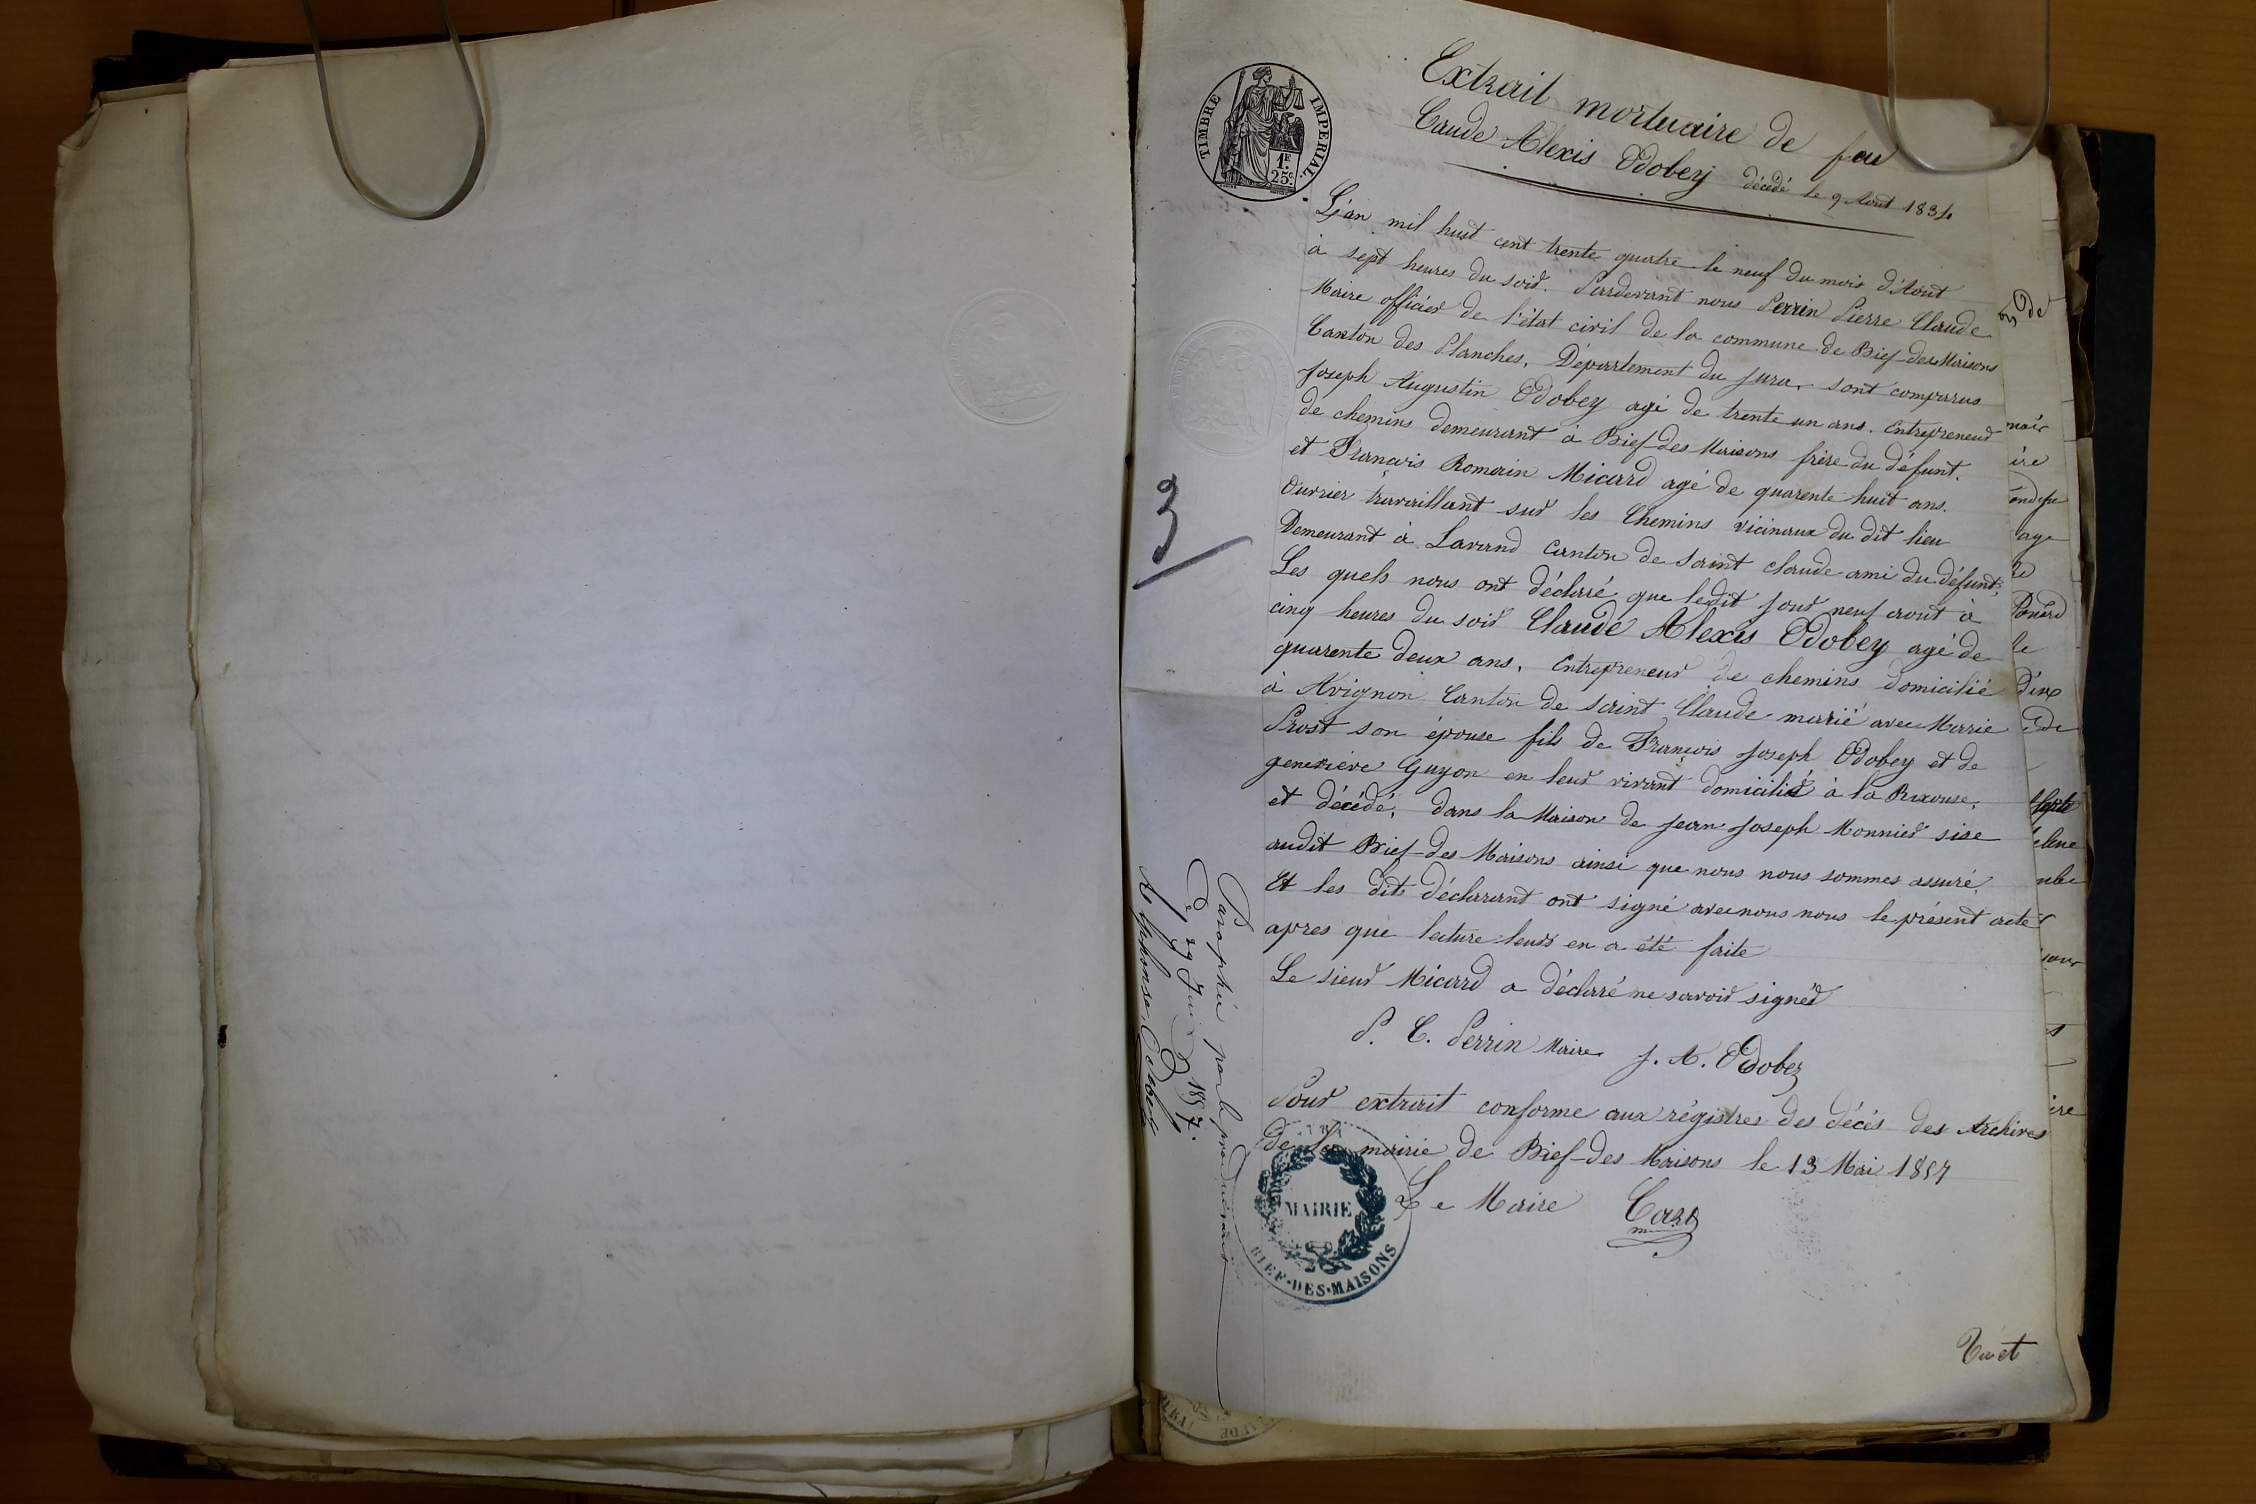 TIMBRE IMPERIAL.
1.F
25c.
Extrait mortuaire de feu
Caude Alexis Odobey décédé le 9 Aout 1834
L'an mil huit cent trente quatre le neuf du mois d'Aout
à sept heures du soir. Pardevant nous Perrin Pierre Claude
Maire officier de l'état civil de la commune de Bief-des-Maisons
Canton des Planches, Département du Jura, sont comparus
Joseph Augustin Odobey agé de trente un ans. Entrepreneur
de chemins demeurant à Bief-des Maisons frère du défunt.
et François Romain Micard agé de quarente huit ans.
Ouvrier travaillant sur les Chemins vicinaux du dit lieu
Demeurant à Lavand Canton de Saint claude ami du défunt,
Les quels nous ont déclaré que ledit jour neuf aout à
cinq heures du soir Claude Alexis Odobey agé de
quarente deux ans, Entrepreneur de chemins domicilié
à Avignon Canton de Saint Claude marié avec Marie
Prost son épouse fils de François Joseph Odobey et de
geneviève Guyon en leur vivant domicilié à la Rixouse,
et décédé, dans la Maison de Jean Joseph Monnier sise
audit Bief-des Maisons ainsi que nous nous sommes assuré,
Et les dits déclarant ont signé avec nous nous le présent acte
apres que lecture leurs en a été faite
Le sieur Micard a déclaré ne savoir signer
P. C. Perrin Maire J. A. Odobez
Pour extrait conforme aux régistres des décés des Archives
de la mairie de Bief-des Maisons le 13 Mai 1857
Le Maire Cart
MAIRIE
BIEF-DES-MAISONS
3
Paraphé par le produisant
De 29 Juin 1857.
Alphonse Odobez